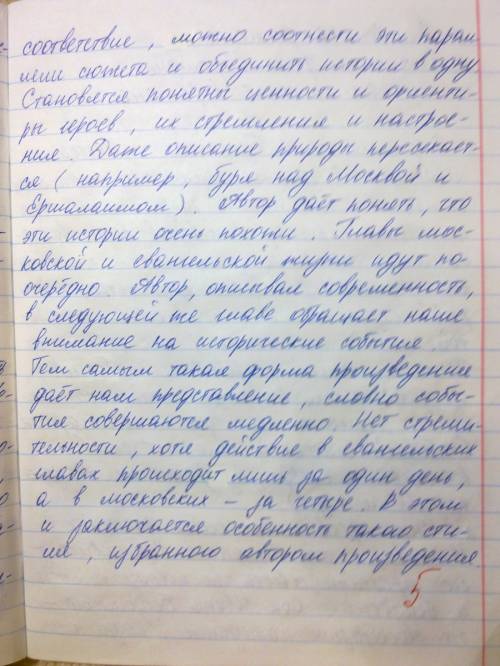 соответствие, можно соотнести эти парал
лели сюжета и объединить истории в одну.
Становятся понятны ценности и ориенти-
ры героев, их стремления и настрое-
ние. Даже описание природы пересекает-
ся (например, буря над Москвой и
Ершалаимом). Автор даёт понять, что
эти истории очень похожи. Главы мос-
ковской и евангельской жизни идут по-
очерёдно. Автор, описывая современность,
в следующей же главе обращает наше
внимание на исторические события.
Тем самым такая форма произведения
даёт нам представление, словно собы-
тия совершаются медленно. Нет стреми-
тельности, хотя действие в евангельских
главах происходит лишь за один день,
а в московских – за четыре. В этом
и заключается особенность такого сти-
ля, избранного автором произведения.
5